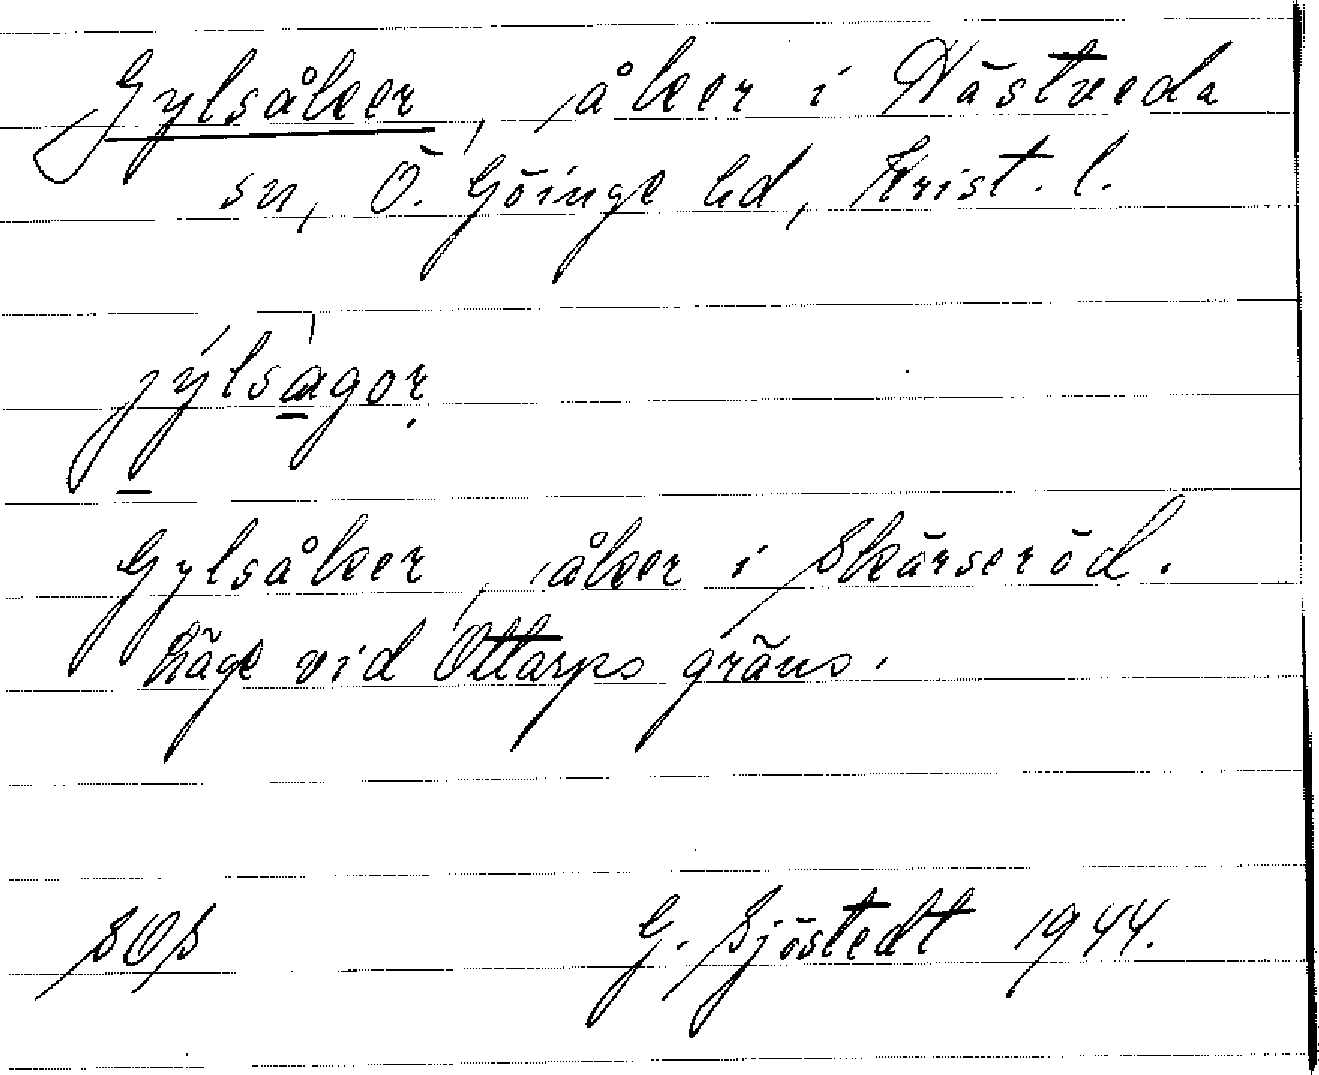 Gylsåker, åker i Nästveda
sn, Ö. Göinge hd, Krist. l.
jýlsàgor
Gylsåker, åker i Skärseröd.
Läge vid Ottarps gräns.
SOS G. Sjöstedt 1944.